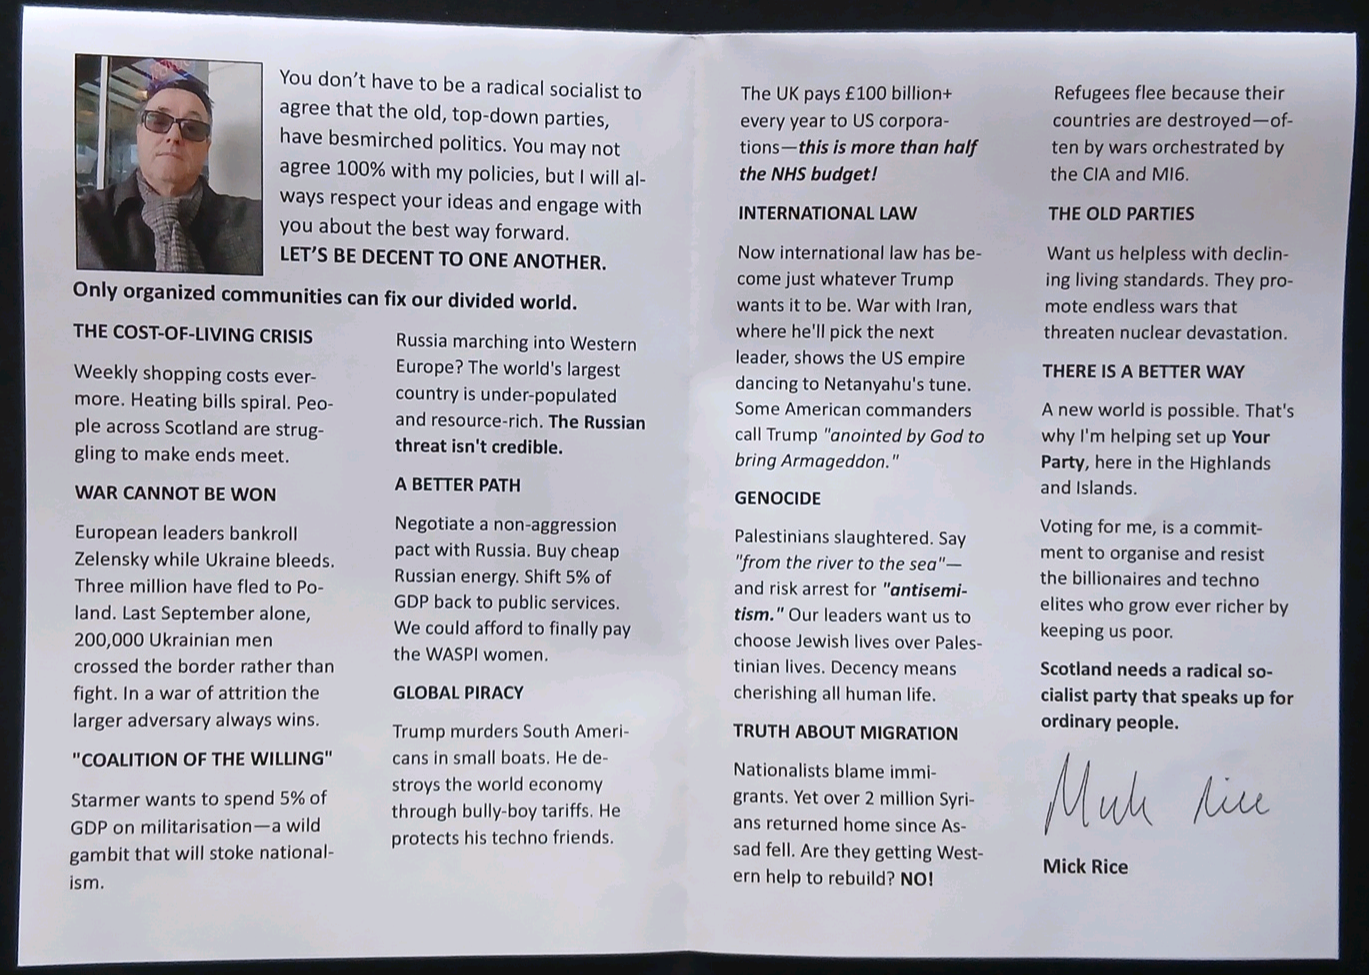 You don't have to be a radical socialist to
agree that the old, top-down parties,
have besmirched politics. You may not
agree 100% with my policies, but I will al-
ways respect your ideas and engage with
you about the best way forward.
LET'S BE DECENT TO ONE ANOTHER.
Only organized communities can fix our divided world.
THE COST-OF-LIVING CRISIS
Weekly shopping costs ever-
more. Heating bills spiral. Peo-
ple across Scotland are strug-
gling to make ends meet.
WAR CANNOT BE WON
European leaders bankroll
Zelensky while Ukraine bleeds.
Three million have fled to Po-
land. Last September alone,
200,000 Ukrainian men
crossed the border rather than
fight. In a war of attrition the
larger adversary always wins.
"COALITION OF THE WILLING"
Starmer wants to spend 5% of
GDP on militarisation—a wild
gambit that will stoke national-
ism.
Russia marching into Western
Europe? The world's largest
country is under-populated
and resource-rich. The Russian
threat isn't credible.
A BETTER PATH
Negotiate a non-aggression
pact with Russia. Buy cheap
Russian energy. Shift 5% of
GDP back to public services.
We could afford to finally pay
the WASPI women.
GLOBAL PIRACY
Trump murders South Ameri-
cans in small boats. He de-
stroys the world economy
through bully-boy tariffs. He
protects his techno friends.
The UK pays £100 billion+
every year to US corpora-
tions—this is more than half
the NHS budget!
INTERNATIONAL LAW
Now international law has be-
come just whatever Trump
wants it to be. War with Iran,
where he'll pick the next
leader, shows the US empire
dancing to Netanyahu's tune.
Some American commanders
call Trump "anointed by God to
bring Armageddon."
GENOCIDE
Palestinians slaughtered. Say
"from the river to the sea"—
and risk arrest for "antisemi-
tism." Our leaders want us to
choose Jewish lives over Pales-
tinian lives. Decency means
cherishing all human life.
TRUTH ABOUT MIGRATION
Nationalists blame immi-
grants. Yet over 2 million Syri-
ans returned home since As-
sad fell. Are they getting West-
ern help to rebuild? NO!
Refugees flee because their
countries are destroyed—of-
ten by wars orchestrated by
the CIA and MI6.
THE OLD PARTIES
Want us helpless with declin-
ing living standards. They pro-
mote endless wars that
threaten nuclear devastation.
THERE IS A BETTER WAY
A new world is possible. That's
why I'm helping set up Your
Party, here in the Highlands
and Islands.
Voting for me, is a commit-
ment to organise and resist
the billionaires and techno
elites who grow ever richer by
keeping us poor.
Scotland needs a radical so-
cialist party that speaks up for
ordinary people.
Mick Rice
Mick Rice